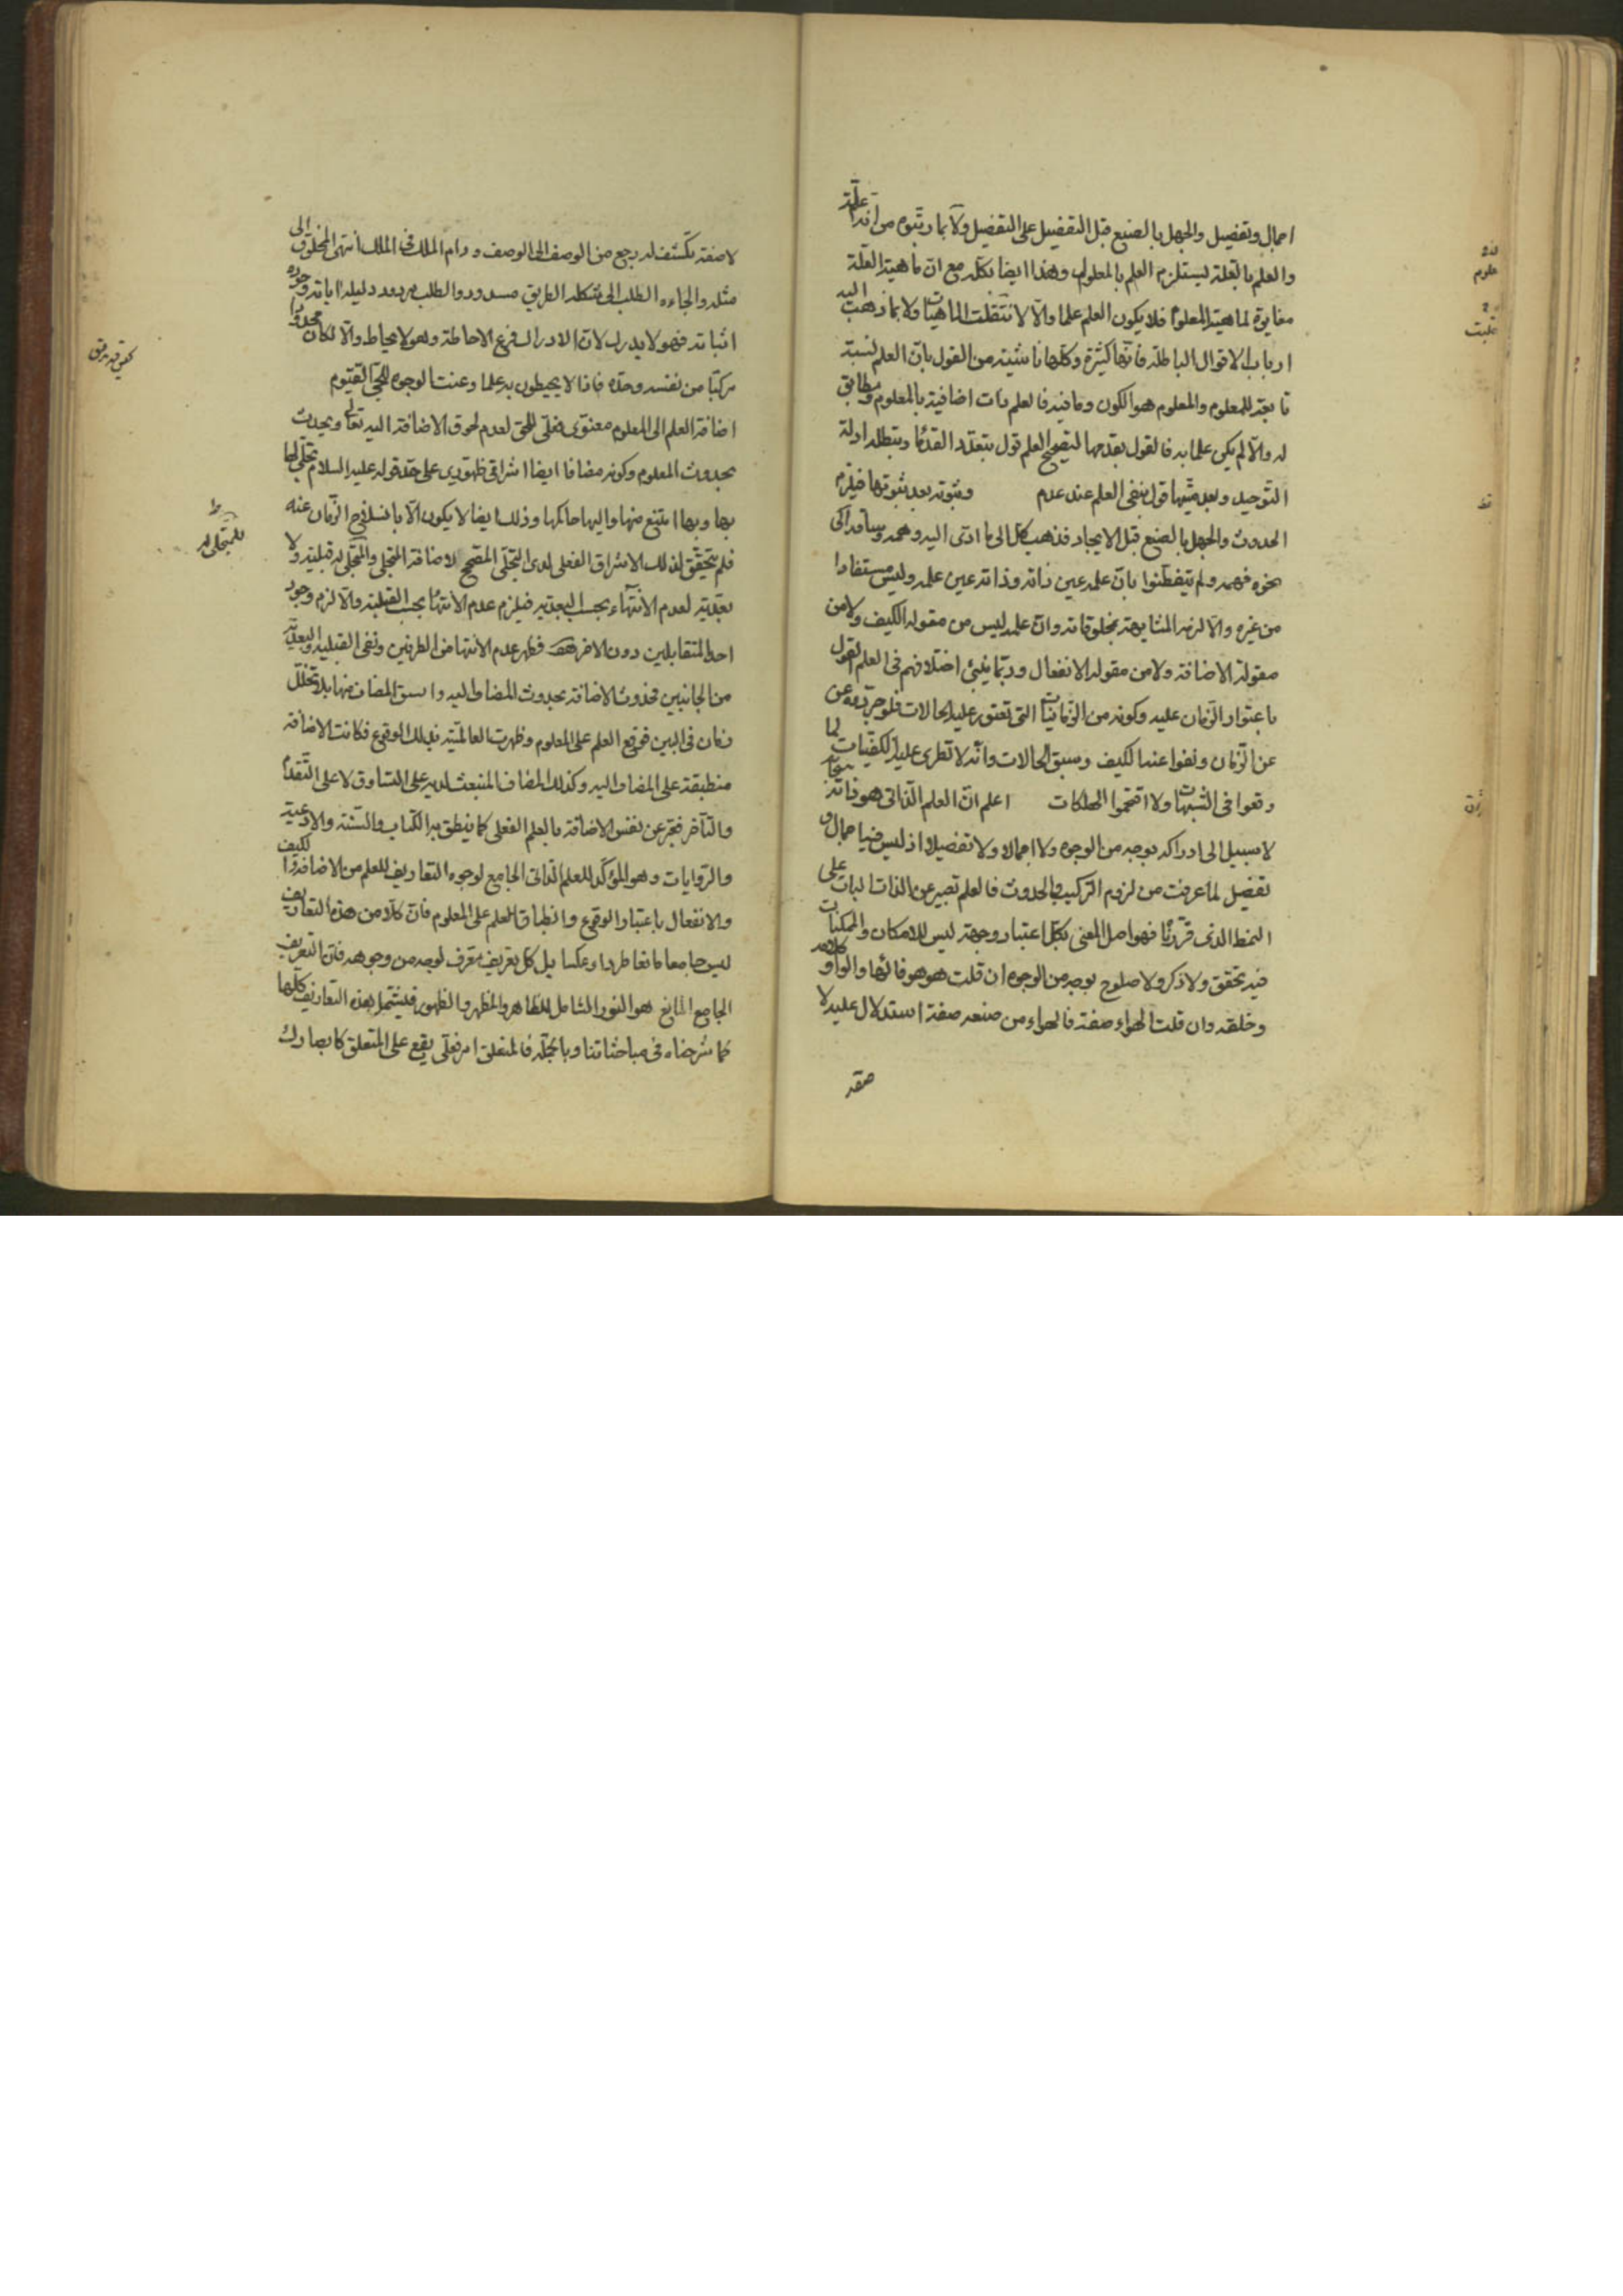 اجمال وتفصيل والجهل بالصنع قبل التفصيل على التفصيل ولا بما ربتوه من انه علة
والعلم بالعلة يستلزم العلم بالمعلول وهذا ايضا كله مع ان ماهية العلة
مغايرة لماهية المعلول فلا يكون العلم علما والا لانتقلت الماهيات ولا بما ذهب اليه
ارباب الاقوال الباطلة فانها كثيرة وكلها ناشئة من القول بان العلم نسبة
تابعة للمعلوم والمعلوم هو الكون وما فيه فالعلم ذات اضافية بالمعلوم ومطابق
له والا لم يكن علما به فالقول بقدمها ليصح العلم قول بتعدد القدماء ويبطله ادلة
التوحيد وبعد ميتها قول بنفي العلم عند عدم وثبوته بعد ثبوتها فيلزم
الحدوث والجهل بالصنع قبل الايجاد فذهب كل الى ما ادى اليه وهمه وساقه الى
نحوه فهمه ولم يتفطنوا بان علمه عين ذاته وذاته عين علمه وليس مستفادا
من غيره والا لزمه المشابهة بمخلوقاته وان علمه ليس من مقولة الكيف ولا من
مقولة الاضافة ولا من مقولة الانفعال وربما ينبئ اختلافهم في العلم القول
باعتوار الزمان عليه وكونه من الزمانيات التي تعتور عليه الحالات فلو جردوه عن
عن الزمان ونفوا عنه الكيف وسبق الحالات وانه لا تطرى عليه الكيفيات لما
وقعوا في الشبهات ولا اقتحموا الهلكات اعلم ان العلم الذاتي هو ذاته
لا سبيل الى ادراكه بوجه من الوجوه ولا اجمالا ولا تفصيلا اذ ليس فيه اجمال و
تفصيل لما عرفت من لزوم التركيب والحدوث فالعلم تعبير عن الذات البات على
النمط الذي قررنا فهو اصل المعنى بكل اعتبار وجهة ليس للامكان والممكنات
فيه تحقق ولا ذكر ولا صلوح بوجه من الوجوه ان قلت هو هو فالهاء والواو كلامه
وخلقه وان قلت الهواء صفته فالهواء من صنعه صفة استدلال عليه لا
صفة
لا صفة تكشف له رجع من الوصف الى الوصف ودام الملك في الملك انتهى المخلوق الى
مثله والجاءه الطلب الى شكله الطريق مسدود والطلب مردود دليله اياته وجوده
اثباته فهو لا يدرك لان الادراك فرع الاحاطة وهو لا يحاط والا لكان محدودا
مركبا من نفسه وحده فاذا لا يحيطون به علما وعنت الوجوه للحي القيوم
اضافة العلم الى المعلوم معنوي فعلي للحق لعدم لحوق الاضافة اليه تعالى ويحدث
بحدوث المعلوم وكونه مضافا ايضا اشراقي ظهوري على حد قوله عليه السلام تجلى لها
بها وبها امتنع منها واليها حاكمها وذلك ايضا لا يكون الا بانسلاخ الزمان عنه
فلم يتحقق لذلك الاشراق الفعلي لدى التجلي المصحح لاضافة المتجلي والمتجلى له قبلية ولا
بعدية لعدم الانتهاء بحسب البعدية فيلزم عدم الانتهاء بحسب القبلية والا لزم وجود
احد المتقابلين دون الاخر هف فظهر عدم الانتها من الطرفين ونفى القبلية والبعدية
من الجانبين فحدوث الاضافة بحدوث المضاف اليه واسبق المضاف منها بلا تخلل
زمان في البين فوقع العلم على المعلوم وظهرت العالمية بذلك الوقوع فكانت الاضافة
منطبقة على المضاف اليه وكذلك المضاف المنبعث لديه على التساوق لا على التقدم
والتأخر فعبر عن نفس الاضافة بالعلم الفعلي كما ينطق به الكتاب والسنة والادعية
والروايات وهو المؤكد للعلم الذاتي الجامع لوجوه التعاريف للعلم من الاضافة والكيف
والانفعال باعتبار الوقوع وانطباق العلم على المعلوم فان كلا من هذه التعاريف
ليس جامعا مانعا طردا وعكسا بل كل تعريف معرف لوجه من وجوهه فان التعريف
الجامع المانع هو النور الشامل للظاهر والمظهر والظهور فيشتمل هذه التعاريف كلها
كما شرحناه في مباحثاتنا وبالجملة فالمتعلق امر فعلي يقع على المتعلق كايصادك
للمتجلى له